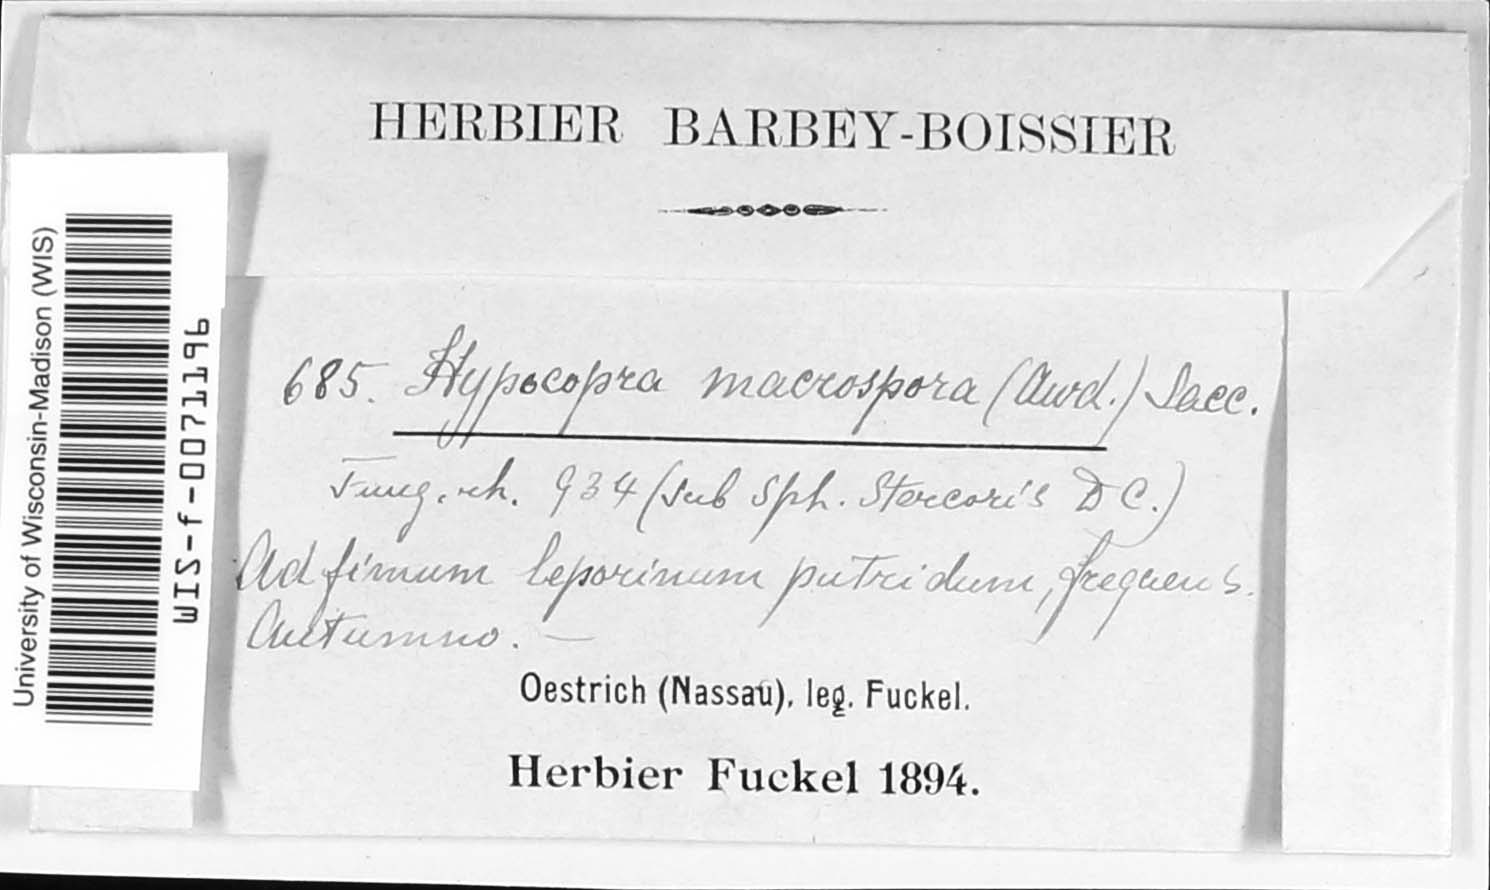 HERBIER BARBEY-BOISSIER
University of Wisconsin-Madison (WIS)
WIS-f-0071196
685. Hypocopra macrospora (Awd.) Sacc.
Fung. rh. 934 (sub Sph. Stercoris DC.)
Ad fimum leporinum putridum, frequens.
Autumno. —
Oestrich (Nassau), leg. Fuckel.
Herbier Fuckel 1894.